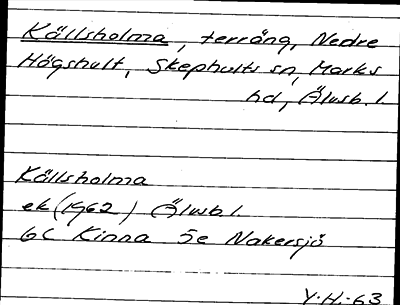 Källsholma, terräng, Nedre
Högshult, Skephults sn, Marks
hd, Älvsb. l.
Källsholma
ek (1962) Älvsb l.
6C Kinna 5e Nakersjö
Y.H.-63